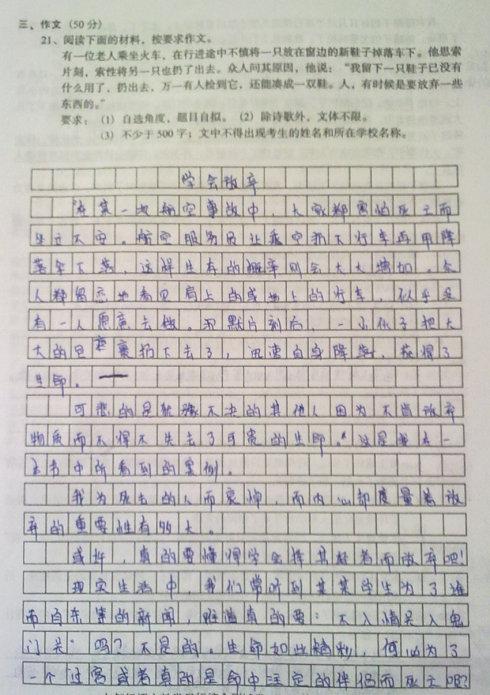 三、作文（50 分）
21、阅读下面的材料，按要求作文。
有一位老人乘坐火车，在行进途中不慎将一只放在窗边的新鞋子掉落车下。他思索
片刻，索性将另一只也扔了出去。众人问其原因，他说：“我留下一只鞋子已没有
什么用了，扔出去，万一有人捡到它，还能凑成一双鞋。人，有时候是要放弃一些
东西的。”
要求：（1）自选角度，题目自拟。（2）除诗歌外，文体不限。
（3）不少于 500 字；文中不得出现考生的姓名和所在学校名称。
学会放弃
“在某一次航空事故中，大家都害怕死亡而
坐立不安。航空服务员让乘客扔下行李再用降
落伞下落，这样生存的概率则会大大增加。众
人都留恋地看见肩上的或地上的行李，似乎没
有一人愿意去做。沉默片刻后，一小伙子把大
大的包裹扔下去了，迅速自身降落，获得了
生命。
可悲的是犹豫不决的其他人因为不肯放弃
物质而不得不失去了可贵的生命。”这是我在一
本书中所看到的案例。
我为死去的人而哀悼，而内心却度量着放
弃的重要性有多大。
或许，真的要懂得学会择其轻者而放弃吧！
现实生活中，我们常听到某某学生为了谁
而自杀等的新闻，难道真的要：不入情关入鬼
门关”吗？不是的。生命如此精彩，何必为了
一个过客或者真的是命中注定的伴侣而死亡呢？